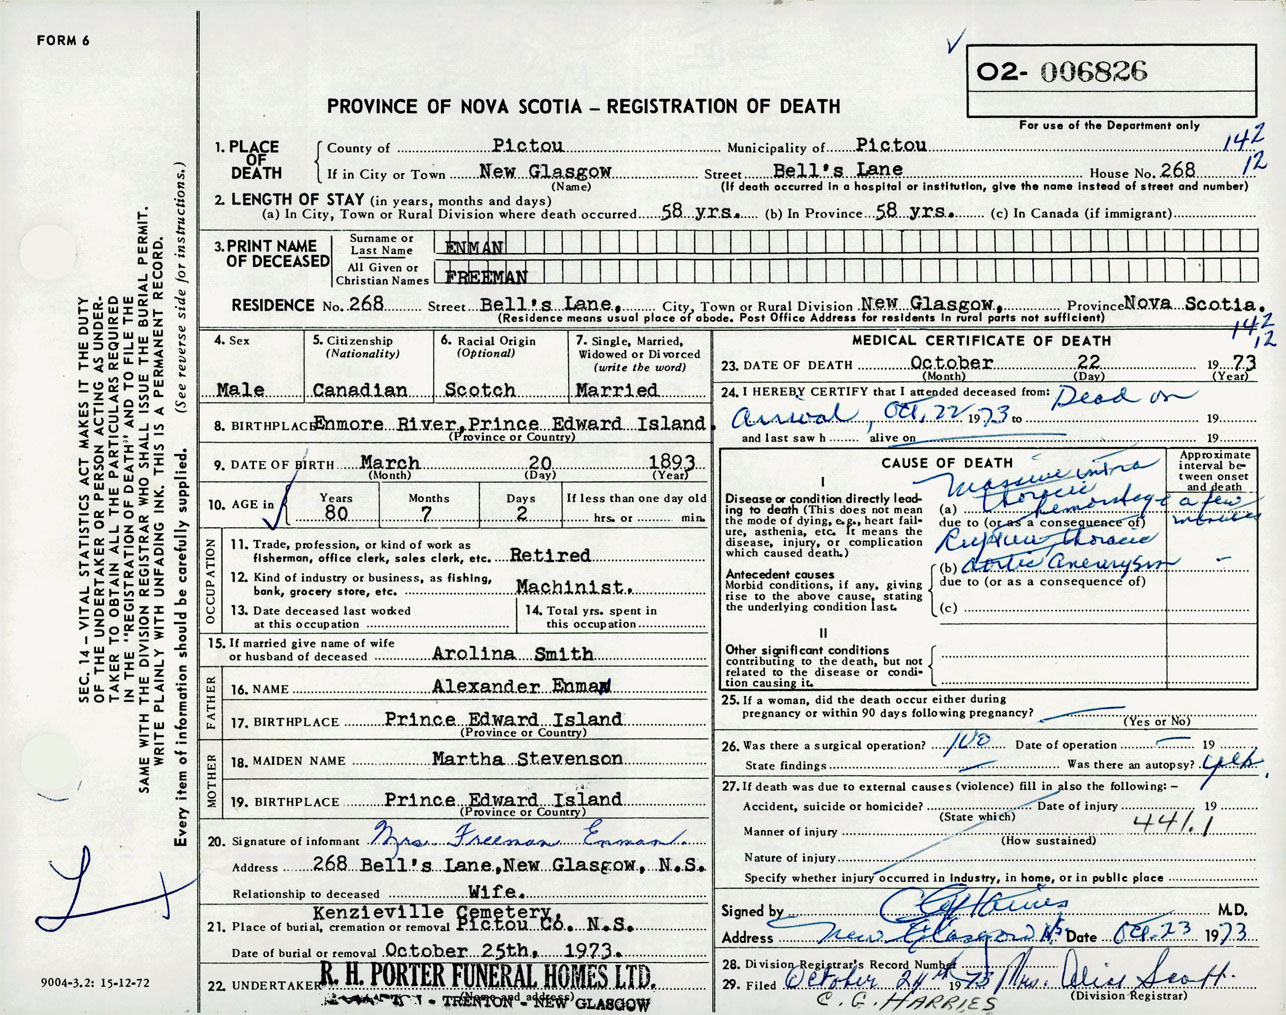 FORM 6
✓
O2- 006826
PROVINCE OF NOVA SCOTIA – REGISTRATION OF DEATH
For use of the Department only
1. PLACE OF DEATH
County of Pictou Municipality of Pictou 142
If in City or Town New Glasgow Street Bell's Lane House No. 268 12
(Name) (If death occurred in a hospital or institution, give the name instead of street and number)
2. LENGTH OF STAY (in years, months and days)
(a) In City, Town or Rural Division where death occurred 58 yrs. (b) In Province 58 yrs. (c) In Canada (if immigrant)
3. PRINT NAME OF DECEASED
Surname or Last Name ENMAN
All Given or Christian Names FREEMAN
RESIDENCE No. 268 Street Bell's Lane, City, Town or Rural Division New Glasgow, Province Nova Scotia.
(Residence means usual place of abode. Post Office Address for residents in rural parts not sufficient)
142
12
4. Sex
Male
5. Citizenship (Nationality)
Canadian
6. Racial Origin (Optional)
Scotch
7. Single, Married, Widowed or Divorced (write the word)
Married
8. BIRTHPLACE Enmore River, Prince Edward Island.
(Province or Country)
9. DATE OF BIRTH March 20 1893
(Month) (Day) (Year)
10. AGE in
Years Months Days If less than one day old
80 7 2 hrs. or min.
OCCUPATION
11. Trade, profession, or kind of work as
fisherman, office clerk, sales clerk, etc. Retired
12. Kind of industry or business, as fishing,
bank, grocery store, etc. Machinist.
13. Date deceased last worked
at this occupation
14. Total yrs. spent in
this occupation
15. If married give name of wife
or husband of deceased Arolina Smith
FATHER
16. NAME Alexander Enman
17. BIRTHPLACE Prince Edward Island
(Province or Country)
MOTHER
18. MAIDEN NAME Martha Stevenson
19. BIRTHPLACE Prince Edward Island
(Province or Country)
20. Signature of informant Mrs. Freeman Enman.
Address 268 Bell's Lane, New Glasgow, N.S.
Relationship to deceased Wife.
Kenzieville Cemetery,
21. Place of burial, cremation or removal Pictou Co. N.S.
Date of burial or removal October 25th, 1973.
22. UNDERTAKER R. H. PORTER FUNERAL HOMES LTD.
(Name and address)
TRENTON - NEW GLASGOW
MEDICAL CERTIFICATE OF DEATH
23. DATE OF DEATH October 22 1973
(Month) (Day) (Year)
24. I HEREBY CERTIFY that I attended deceased from: Dead on
Arrival, Oct. 22 1973 to 19
and last saw h alive on 19
CAUSE OF DEATH
Approximate interval between onset and death
I
Disease or condition directly leading to death (This does not mean the mode of dying, e.g., heart failure, asthenia, etc. It means the disease, injury, or complication which caused death.)
Massive intra
thoracic
(a) hemorrhage a few
minutes
due to (or as a consequence of)
Rupture thoracic
(b) aortic aneurysm -
due to (or as a consequence of)
Antecedent causes
Morbid conditions, if any, giving rise to the above cause, stating the underlying condition last.
(c)
II
Other significant conditions
contributing to the death, but not related to the disease or condition causing it.
25. If a woman, did the death occur either during
pregnancy or within 90 days following pregnancy?
(Yes or No)
26. Was there a surgical operation? No Date of operation 19
State findings Was there an autopsy? yes
27. If death was due to external causes (violence) fill in also the following: –
Accident, suicide or homicide? Date of injury 19
(State which)
Manner of injury 441.1
(How sustained)
Nature of injury
Specify whether injury occurred in Industry, in home, or in public place
Signed by M.D.
Address New Glasgow NS Date Oct. 23 1973
28. Division Registrar's Record Number
29. Filed October 24th 1973 Mrs. Alice Scott.
(Division Registrar)
C. G. HARRIES
SEC. 14 – VITAL STATISTICS ACT MAKES IT THE DUTY
OF THE UNDERTAKER OR PERSON ACTING AS UNDER-
TAKER TO OBTAIN ALL THE PARTICULARS REQUIRED
IN THE "REGISTRATION OF DEATH" AND TO FILE THE
SAME WITH THE DIVISION REGISTRAR WHO SHALL ISSUE THE BURIAL PERMIT.
WRITE PLAINLY WITH UNFADING INK. THIS IS A PERMANENT RECORD.
Every item of information should be carefully supplied. (See reverse side for instructions.)
9004-3.2: 15-12-72